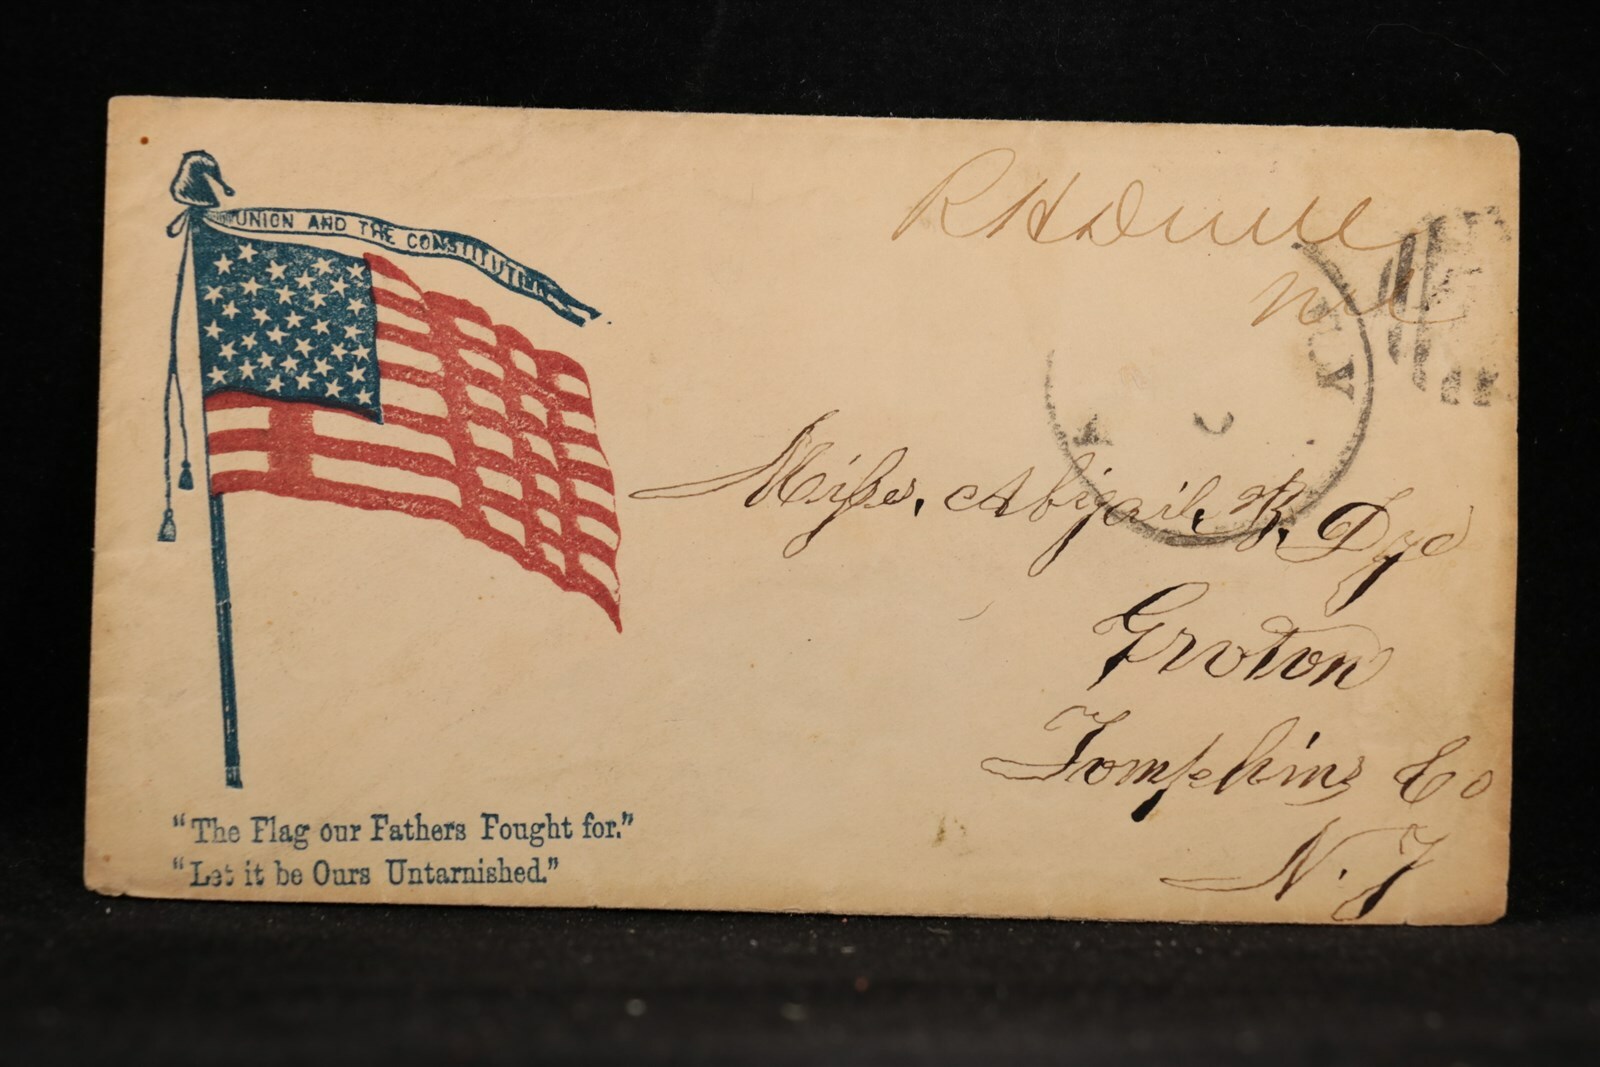 UNION AND THE CONSTITUTION
R H Duell
MC
Miss. Abigail. B. Dye
Groton
Tompkins Co
N. Y
"The Flag our Fathers Fought for."
"Let it be Ours Untarnished."